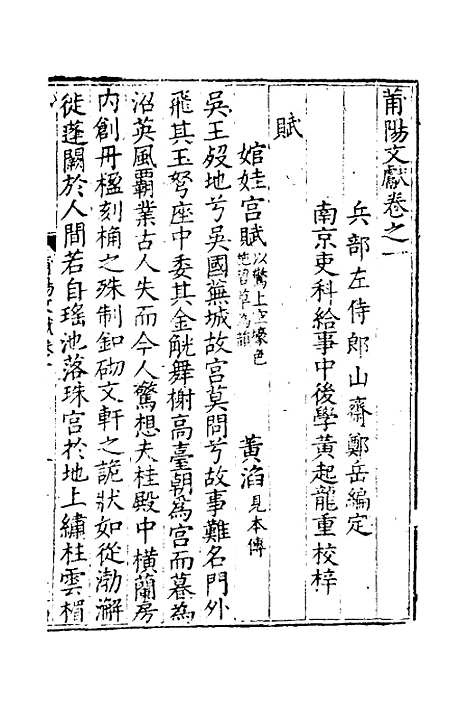 莆陽文獻卷之一
兵部左侍郎山齋鄭岳編定
南京吏科給事中後學黃起龍重校梓
賦
館娃宮賦 以驚上空壕色施留草為韻 黃滔見本傳
吳王歿地兮吳國蕪城故宮莫問兮故事難名門外
飛其玉弩座中委其金觥舞榭高臺朝為宮而暮為
沼英風霸業古人失而今人驚想夫桂殿中橫蘭房
內創丹楹刻桷之殊制釦砌文軒之詭狀如從渤澥
徙蓬闕於人間若自瑤池落珠宮於地上繡柱雲楣
莆陽文獻卷一